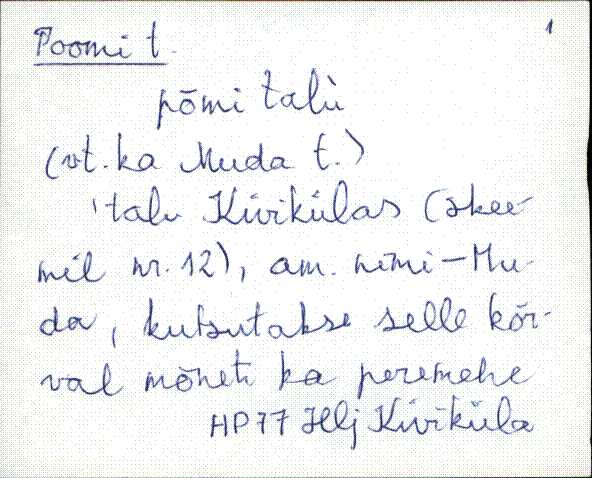 Poomi t. 1
pōmi talù
(vt. ka Muda t.)
'talu Kivikülas (skee-
mil nr. 12), am. nimi - Mu-
da, kutsutakse selle kõr-
val mõneti ka peremehe
HP77 Hlj Kiviküla